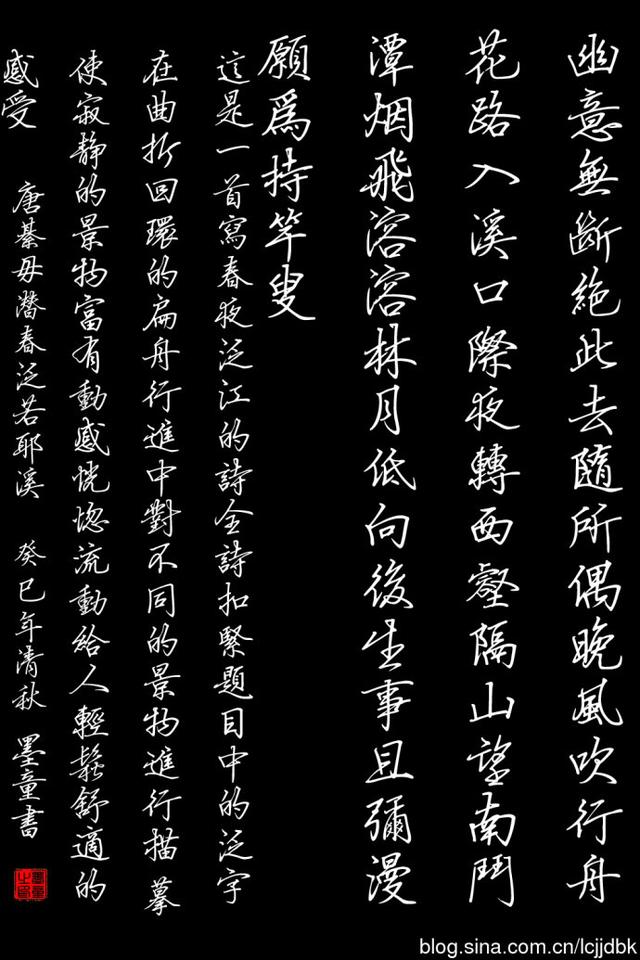 幽意無斷絕此去隨所偶晚風吹行舟
花路入溪口際夜轉西壑隔山望南鬥
潭烟飛溶溶林月低向後生事且彌漫
願為持竿叟
這是一首寫春夜泛江的詩全詩扣緊題目中的泛字
在曲折回環的扁舟行進中對不同的景物進行描摹
使寂靜的景物富有動感恍惚流動給人輕鬆舒適的
感受
唐綦毋潛春泛若耶溪 癸巳年清秋 墨童書
blog.sina.com.cn/lcjjdbk